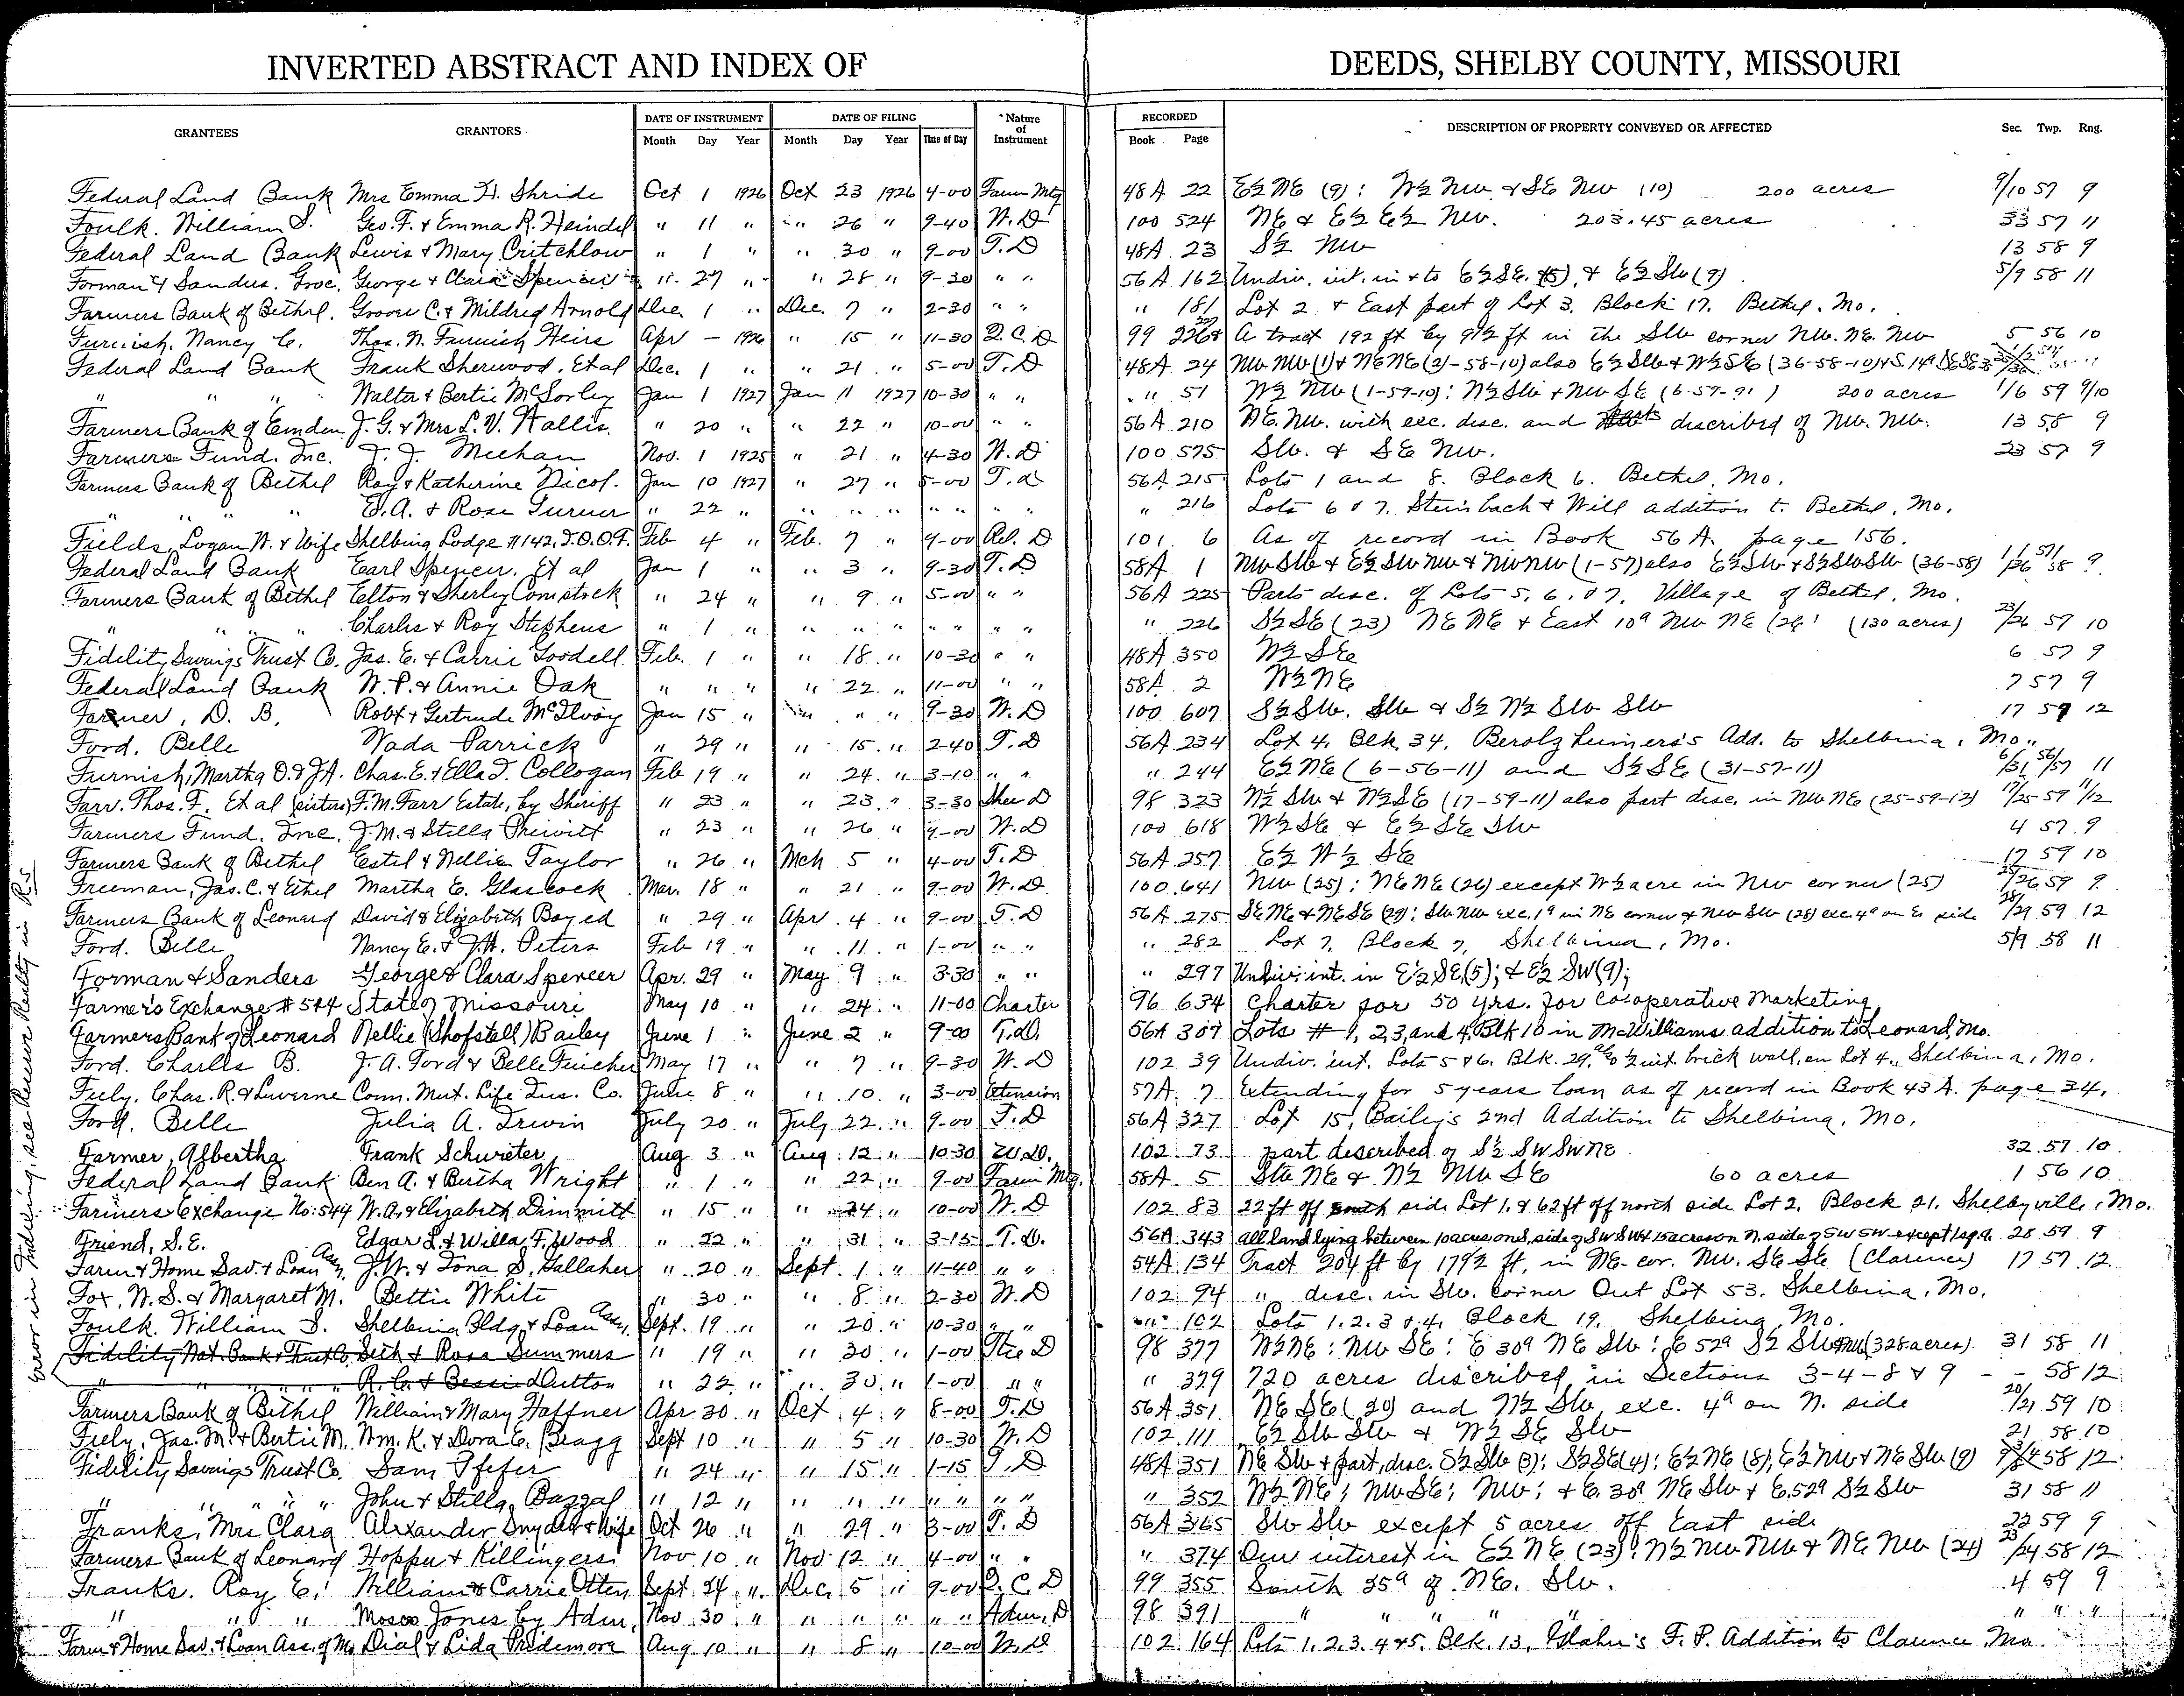 INVERTED ABSTRACT AND INDEX OF DEEDS, SHELBY COUNTY, MISSOURI
GRANTEES GRANTORS DATE OF INSTRUMENT Month Day Year DATE OF FILING Month Day Year Time of Day Nature of Instrument RECORDED Book Page DESCRIPTION OF PROPERTY CONVEYED OR AFFECTED Sec. Twp. Rng.
Federal Land Bank Mrs Emma H. Shride Oct 1 1926 Oct 23 1926 4-00 Farm Mtg 48A 22 E½ NE (9): W½ NW & SE NW (10) 200 acres 9/10 57 9
Foulk. William S. Geo. F. & Emma R. Heindel " 11 " " 26 " 9-40 W. D 100 524 NE & E½ E½ NW. 203.45 acres 33 57 11
Federal Land Bank Lewis & Mary Critchlow " 1 " " 30 " 9-00 T. D 48A 23 S½ NW 13 58 9
Forman & Sandus. Groc. George & Clara Spencer " 27 " " 28 " 9-30 " " 56A 162 Undiv. int. in & to E½ SE. (5), & E½ SW (9) 5/9 58 11
Farmers Bank of Bethel. Groover C. & Mildred Arnold Dec. 1 " Dec. 7 " 2-30 " " " 181 Lot 2 & East part of Lot 3, Block 17. Bethel. Mo.
Furnish. Nancy C. Thos. N. Furnish Heirs Apr - 1926 " 15 " 11-30 Q. C. D 99 A tract 192 ft by 9½ ft in the SW corner NW. NE. NW 5 56 10
Federal Land Bank Frank Sherwood. Et al Dec. 1 " " 21 " 5-00 T. D 48A 24 NW NW (1) & NE NE (2)-58-10) also E½ SW & W½ SE (36-58-10)
" " " Walter & Bertie McSorley Jan 1 1927 Jan 11 1927 10-30 " " " 51 W½ NW (1-59-10): W½ SW & NW SE (6-59-9) 200 acres 1/6 59 9/10
Farmers Bank of Emden J. G. & Mrs L. V. Wallis. " 20 " " 22 " 10-00 " " 56A 210 NE. NW. with exc. desc. and described of NW. NW. 13 58 9
Farmers Fund. Inc. J. J. Meehan Nov. 1 1925 " 21 " 4-30 W. D 100 575 SW. & SE NW. 23 57 9
Farmers Bank of Bethel Roy & Katherine Nicol. Jan 10 1927 " 27 " 5-00 T. D 56A 215 Lots 1 and 8. Block 6. Bethel, Mo.
" " " E. A. & Rose Turner " 22 " " " " " " " " " 216 Lots 6 & 7. Steinbach & Will addition to Bethel, Mo.
Fields, Logan W. & Wife Shelbina Lodge #142. I.O.O.F. Feb 4 " Feb. 7 " 9-00 Rel. D 101 6 As of record in Book 56A. page 156.
Federal Land Bank Earl Spencer. Et al Jan 1 " " 3 " 9-30 T. D 58A 1 NW SW & E½ SW NW & NW NW (1-57) also E½ SW & S½ SW SW (36-58) 1/36 57/58 9
Farmers Bank of Bethel Elton & Sherley Comstock " 24 " " 9 " 5-00 " " 56A 225 Parts desc. of Lots 5, 6, & 7, Village of Bethel, Mo.
" " " Charles & Roy Stephens " 1 " " " " " " " " " 226 S½ SE (23) NE NE & East 10a NW NE (26) (130 acres) 23/26 57 10
Fidelity Savings Trust Co. Jas. E. & Carrie Goodell Feb. 1 " " 18 " 10-30 " " 48A 350 W½ SE 6 57 9
Federal Land Bank W. P. & Annie Oak " " " " 22 " 11-00 " " 58A 2 W½ NE 7 57 9
Farmer, D. B. Robt & Gertrude McIlvoy Jan 15 " " " " 9-30 W. D 100 607 S½ SW. SW & S½ W½ SW SW 17 59 12
Ford. Belle Wada Parrick " 29 " " 15 " 2-40 T. D 56A 234 Lot 4, Blk, 34, Berolzheimers's Add. to Shelbina, Mo.
Furnish, Martha O. & J.A. Chas. E. & Ella J. Collogan Feb 19 " " 24 " 3-10 " " " 244 E½ NE (6-56-11) and S½ SE (31-57-11) 6/31 56/57 11
Farr. Thos. F. Et al (sisters) F. M. Farr Estate, by Sheriff " 23 " " 23 " 3-30 Sher D 98 323 N½ SW & W½ SE (17-59-11) also part desc. in NW NE (25-59-12) 17/25 59 11/12
Farmers Fund. Inc. J. M. & Stella Prewitt " 23 " " 26 " 9-00 W. D 100 618 W½ SE & E½ SE SW 4 57 9
Farmers Bank of Bethel Estel & Nellie Taylor " 26 " Mch 5 " 4-00 T. D 56A 257 E½ W½ SE 17 59 10
Freeman, Jas. C. & Ethel Martha E. Glascock Mar. 18 " " 21 " 9-00 W. D 100 641 NW (25): NE NE (26) except W½ acre in NW corner (25) 25/26 59 9
Farmers Bank of Leonard David & Elizabeth Boyed " 29 " Apr. 4 " 9-00 T. D 56A 275 SE NE & NE SE (29): SW NW exc. 1a in NE corner & NW SW (28) exc. 4a on E. side 28/29 59 12
Ford. Belle Nancy E. & J. H. Peters Feb 19 " " 11 " 1-00 " " " 282 Lot 7, Block 7, Shelbina, Mo. 5/9 58 11
Forman & Sanders George & Clara Spencer Apr. 29 " May 9 " 3-30 " " " 297 Undiv. int. in E½ SE, (5); & E½ SW (9);
Farmer's Exchange #544 State of Missouri May 10 " " 24 " 11-00 Charter 96 634 Charter for 50 yrs. for Co-operative Marketing
Farmers Bank of Leonard Nellie (Shofstall) Bailey June 1 " June 2 " 9-00 T. D. 56A 307 Lots #1, 2, 3, and 4, Blk 10 in McWilliams addition to Leonard, Mo.
Ford. Charles B. J. A. Ford & Belle Fincher May 17 " " 7 " 9-30 W. D 102 39 Undiv. int. Lots 5 & 6. Blk. 29, also ½ int. brick wall, on Lot 4, Shelbina, Mo.
Feely, Chas. R. & Luverne Conn. Mut. Life Ins. Co. June 8 " " 10 " 3-00 Extension 57A 7 Extending for 5 years loan as of record in Book 43A. page 34.
Ford. Belle Julia A. Irwin July 20 " July 22 " 9-00 T. D 56A 327 Lot 15, Bailey's 2nd Addition to Shelbina, Mo.
Farmer, Albertha Frank Schwieter Aug 3 " Aug. 12 " 10-30 W. D. 102 73 part described of S½ SW SW NE 32 57 10
Federal Land Bank Ben A. & Bertha Wright " 1 " " 22 " 9-00 Farm Mtg. 58A 5 SW NE & W½ NW SE 60 acres 1 56 10
Farmers Exchange No. 544 W. A. & Elizabeth Dimmitt " 15 " " 24 " 10-00 W. D 102 83 22 ft off south side Lot 1, & 62 ft off north side Lot 2, Block 21. Shelbyville, Mo.
Friend, S. E. Edgar L. & Willa F. Wood " 22 " " 31 " 3-15 T. D. 56A 343 all land lying between 10 acres on S. side of SW SW & 15 acres on N. side of SW SW except 28 59 9
Farm & Home Sav. & Loan Assn. J. W. & Iona S. Gallaher " 20 " Sept. 1 " 11-40 " " 54A 134 Tract 204 ft by 179½ ft, in NE. cor. NW. SE SE (Clarence) 17 57 12
Fox, W. S. & Margaret M. Bettie White " 30 " " 8 " 2-30 W. D 102 94 " desc. in SW. corner Out Lot 53. Shelbina, Mo.
Foulk. William S. Shelbina Bldg & Loan Assn. Sept. 19 " " 20 " 10-30 " " " 102 Lots 1. 2. 3 & 4. Block 19. Shelbina, Mo.
Fidelity Nat. Bank & Trust Co. Seth & Rosa Summers " 19 " " 30 " 1-00 Tree D 98 377 W½ NE: NW SE: E 30a NE SW: E 52a S½ SW & NW (328 acres) 31 58 11
" " " " " R. C. & Bessie Dutton " 22 " " 30 " 1-00 " " " 379 720 acres described in Sections 3-4-8 & 9 - - 58 12
Farmers Bank of Bethel William & Mary Haffner Apr 30 " Oct. 4 " 8-00 T. D 56A 351 NE SE (20) and N½ SW, exc. 4a on N. side 20/21 59 10
Feely, Jas. M. & Bertie M. Wm. K. & Dora E. Bragg Sept 10 " " 5 " 10-30 W. D 102 111 E½ SW SW & W½ SE SW 21 58 10
Fidelity Savings Trust Co. Sam Pfefer " 24 " " 15 " 1-15 T. D 48A 351 NE SW & part, desc. S½ SW (3): S½ SE (4): E½ NE (8), E½ NW & NE SW (9) 58 12
" " " " John & Stella Bazzal " 12 " " " " " " " " " 352 W½ NE; NW SE; NW; & E. 30a NE SW & E. 52a S½ SW 31 58 11
Franks, Mrs Clara Alexander Snyder & wife Oct 26 " " 29 " 3-00 T. D 56A 365 SW SW except 5 acres off East side 22 59 9
Farmers Bank of Leonard Hopper & Killingers. Nov. 10 " Nov 12 " 4-00 " " " 374 Our interest in E½ NE (23): W½ NW NW & NE NW (24) 23/24 58 12
Franks. Roy E. William & Carrie Otten Sept. 24 " Dec. 5 " 9-00 Q. C. D 99 355 South 35a of NE. SW. 4 59 9
" " " Moses Jones by Adm, Nov 30 " " " " " " Adm. D 98 391 " " " " " " " "
Farm & Home Sav. & Loan Ass. of Mo Dial & Lida Pridemore Aug 10 " " 8 " 10-00 W. D 102 164 Lots 1. 2. 3. 4 & 5. Blk. 13, F. P. Addition to Clarence, Mo.
Error in Indexing, see Reserve Realty in R's